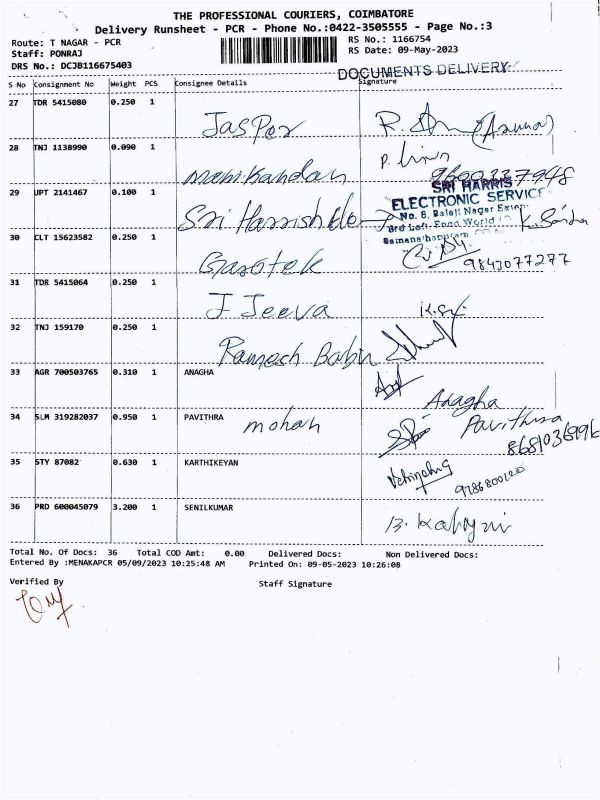 THE PROFESSIONAL COURIERS, COIMBATORE
Delivery Runsheet - PCR - Phone No.:0422-3505555 - Page No.:3
Route: T NAGAR - PCR RS No.: 1166754
Staff: PONRAJ RS Date: 09-May-2023
DRS No.: DCJB116675403
DOCUMENTS DELIVERY
S No Consignment No Weight PCS Consignee Details Signature
27 TDR 5415080 0.250 1
Jasper R.
28 TNJ 1138990 0.090 1
Manikandan 9600337948
29 UPT 2141467 0.100 1
Sri Harrish
SRI HARRIS
ELECTRONIC SERVICE
No. 8, Balaji Nagar Exten.
3rd Left, Food World
30 CLT 15623582 0.250 1
Gasotek 9843077277
31 TDR 5415064 0.250 1
J Jeeva
32 TNJ 159170 0.250 1
Ramesh Babu
33 AGR 700503765 0.310 1 ANAGHA
Anagha
34 SLM 319282037 0.950 1 PAVITHRA
mohan Pavithra
35 STY 87082 0.630 1 KARTHIKEYAN
36 PRD 600045079 3.200 1 SENILKUMAR
Total No. Of Docs: 36 Total COD Amt: 0.00 Delivered Docs: Non Delivered Docs:
Entered By :MENAKAPCR 05/09/2023 10:25:48 AM Printed On: 09-05-2023 10:26:08
Verified By Staff Signature